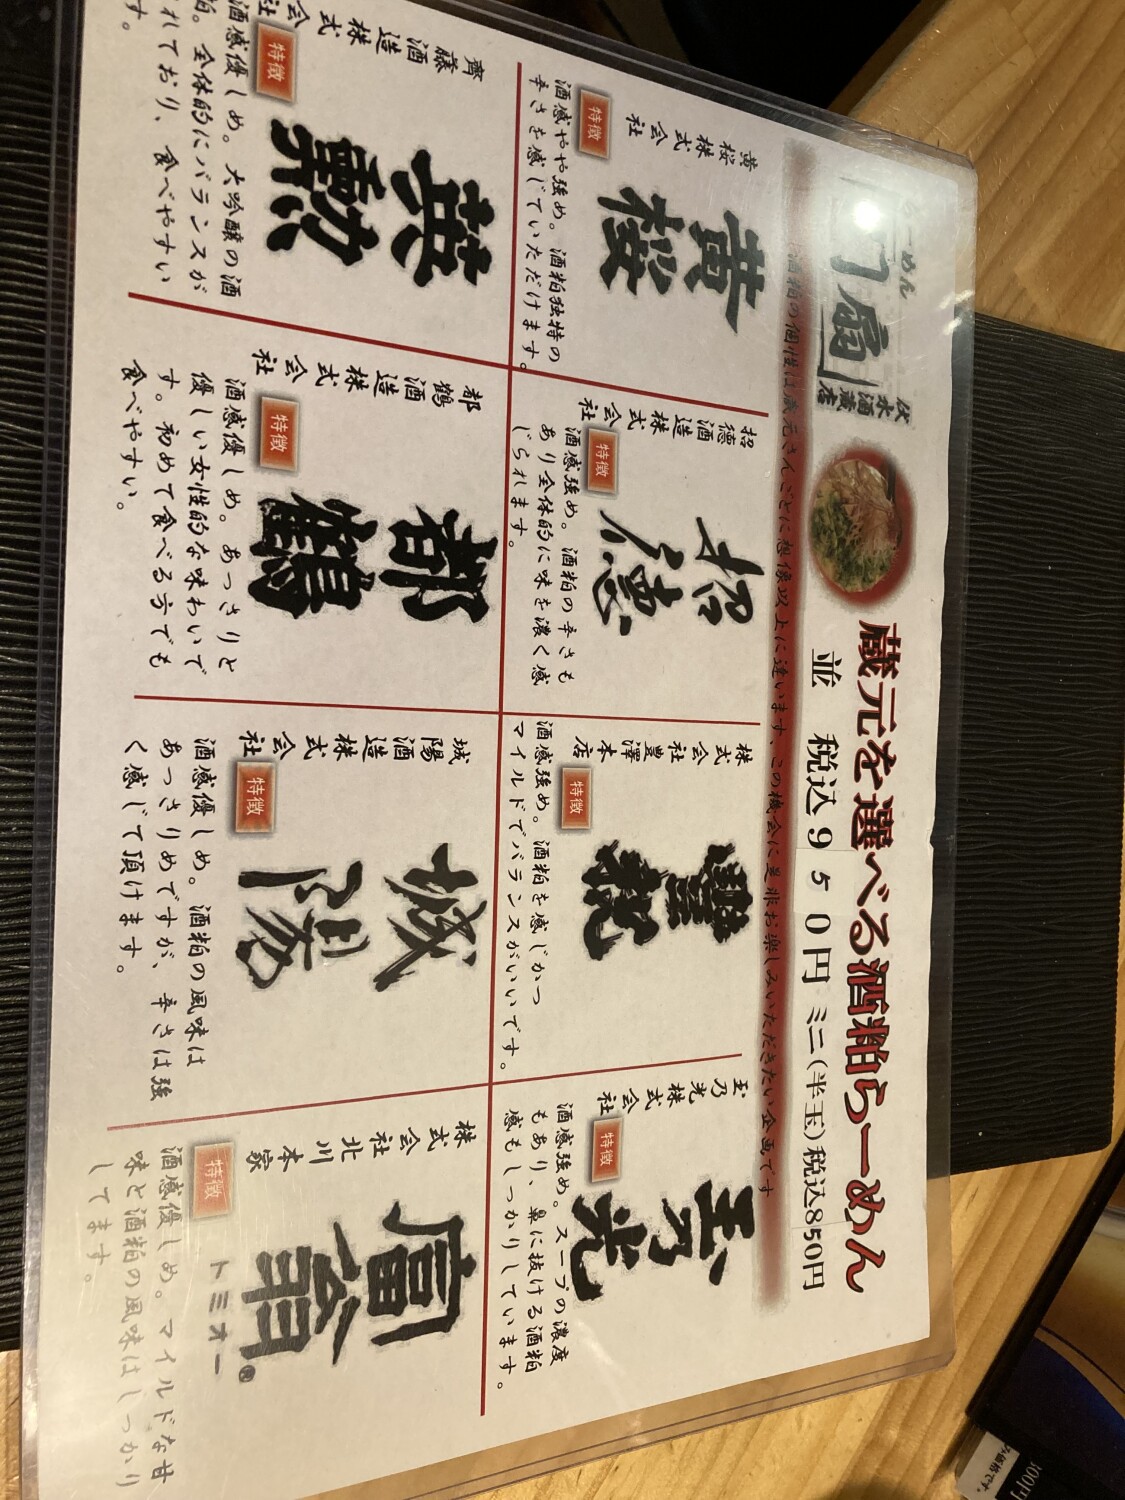 らーめん
門扇
伏水酒蔵店
蔵元を選べる酒粕らーめん
並 税込950円 ミニ(半玉)税込850円
酒粕の個性は蔵元さんごとに想像以上に違います、この機会に是非お楽しみいただきたい企画です
黄桜株式会社
黄桜
特徴
酒感やや強め。酒粕独特の
辛さを感じていただけます。
招德酒造株式会社
招德
特徴
酒感強め。酒粕の辛さも
あり全体的に味を濃く感
じられます。
株式会社豊澤本店
豊祝
特徴
酒感強め。酒粕を感じかつ
マイルドでバランスがいいです。
玉乃光株式会社
玉乃光
特徴
酒感強め。スープの濃度
もあり、鼻に抜ける酒粕
感もしっかりしています。
齊藤酒造株式会社
英勲
特徴
酒感優しめ。大吟醸の酒
粕。全体的にバランスが
れており、食べやすい
す。
都鶴酒造株式会社
都鶴
特徴
酒感優しめ。あっさりと
優しい女性的な味わいで
す。初めて食べる方でも
食べやすい。
城陽酒造株式会社
城陽
特徴
酒感優しめ。酒粕の風味は
あっさりめですが、辛さは強
く感じて頂けます。
株式会社北川本家
富翁®
トミオー
特徴
酒感優しめ。マイルドな甘
味と酒粕の風味はしっかり
してます。
価格です。
00円